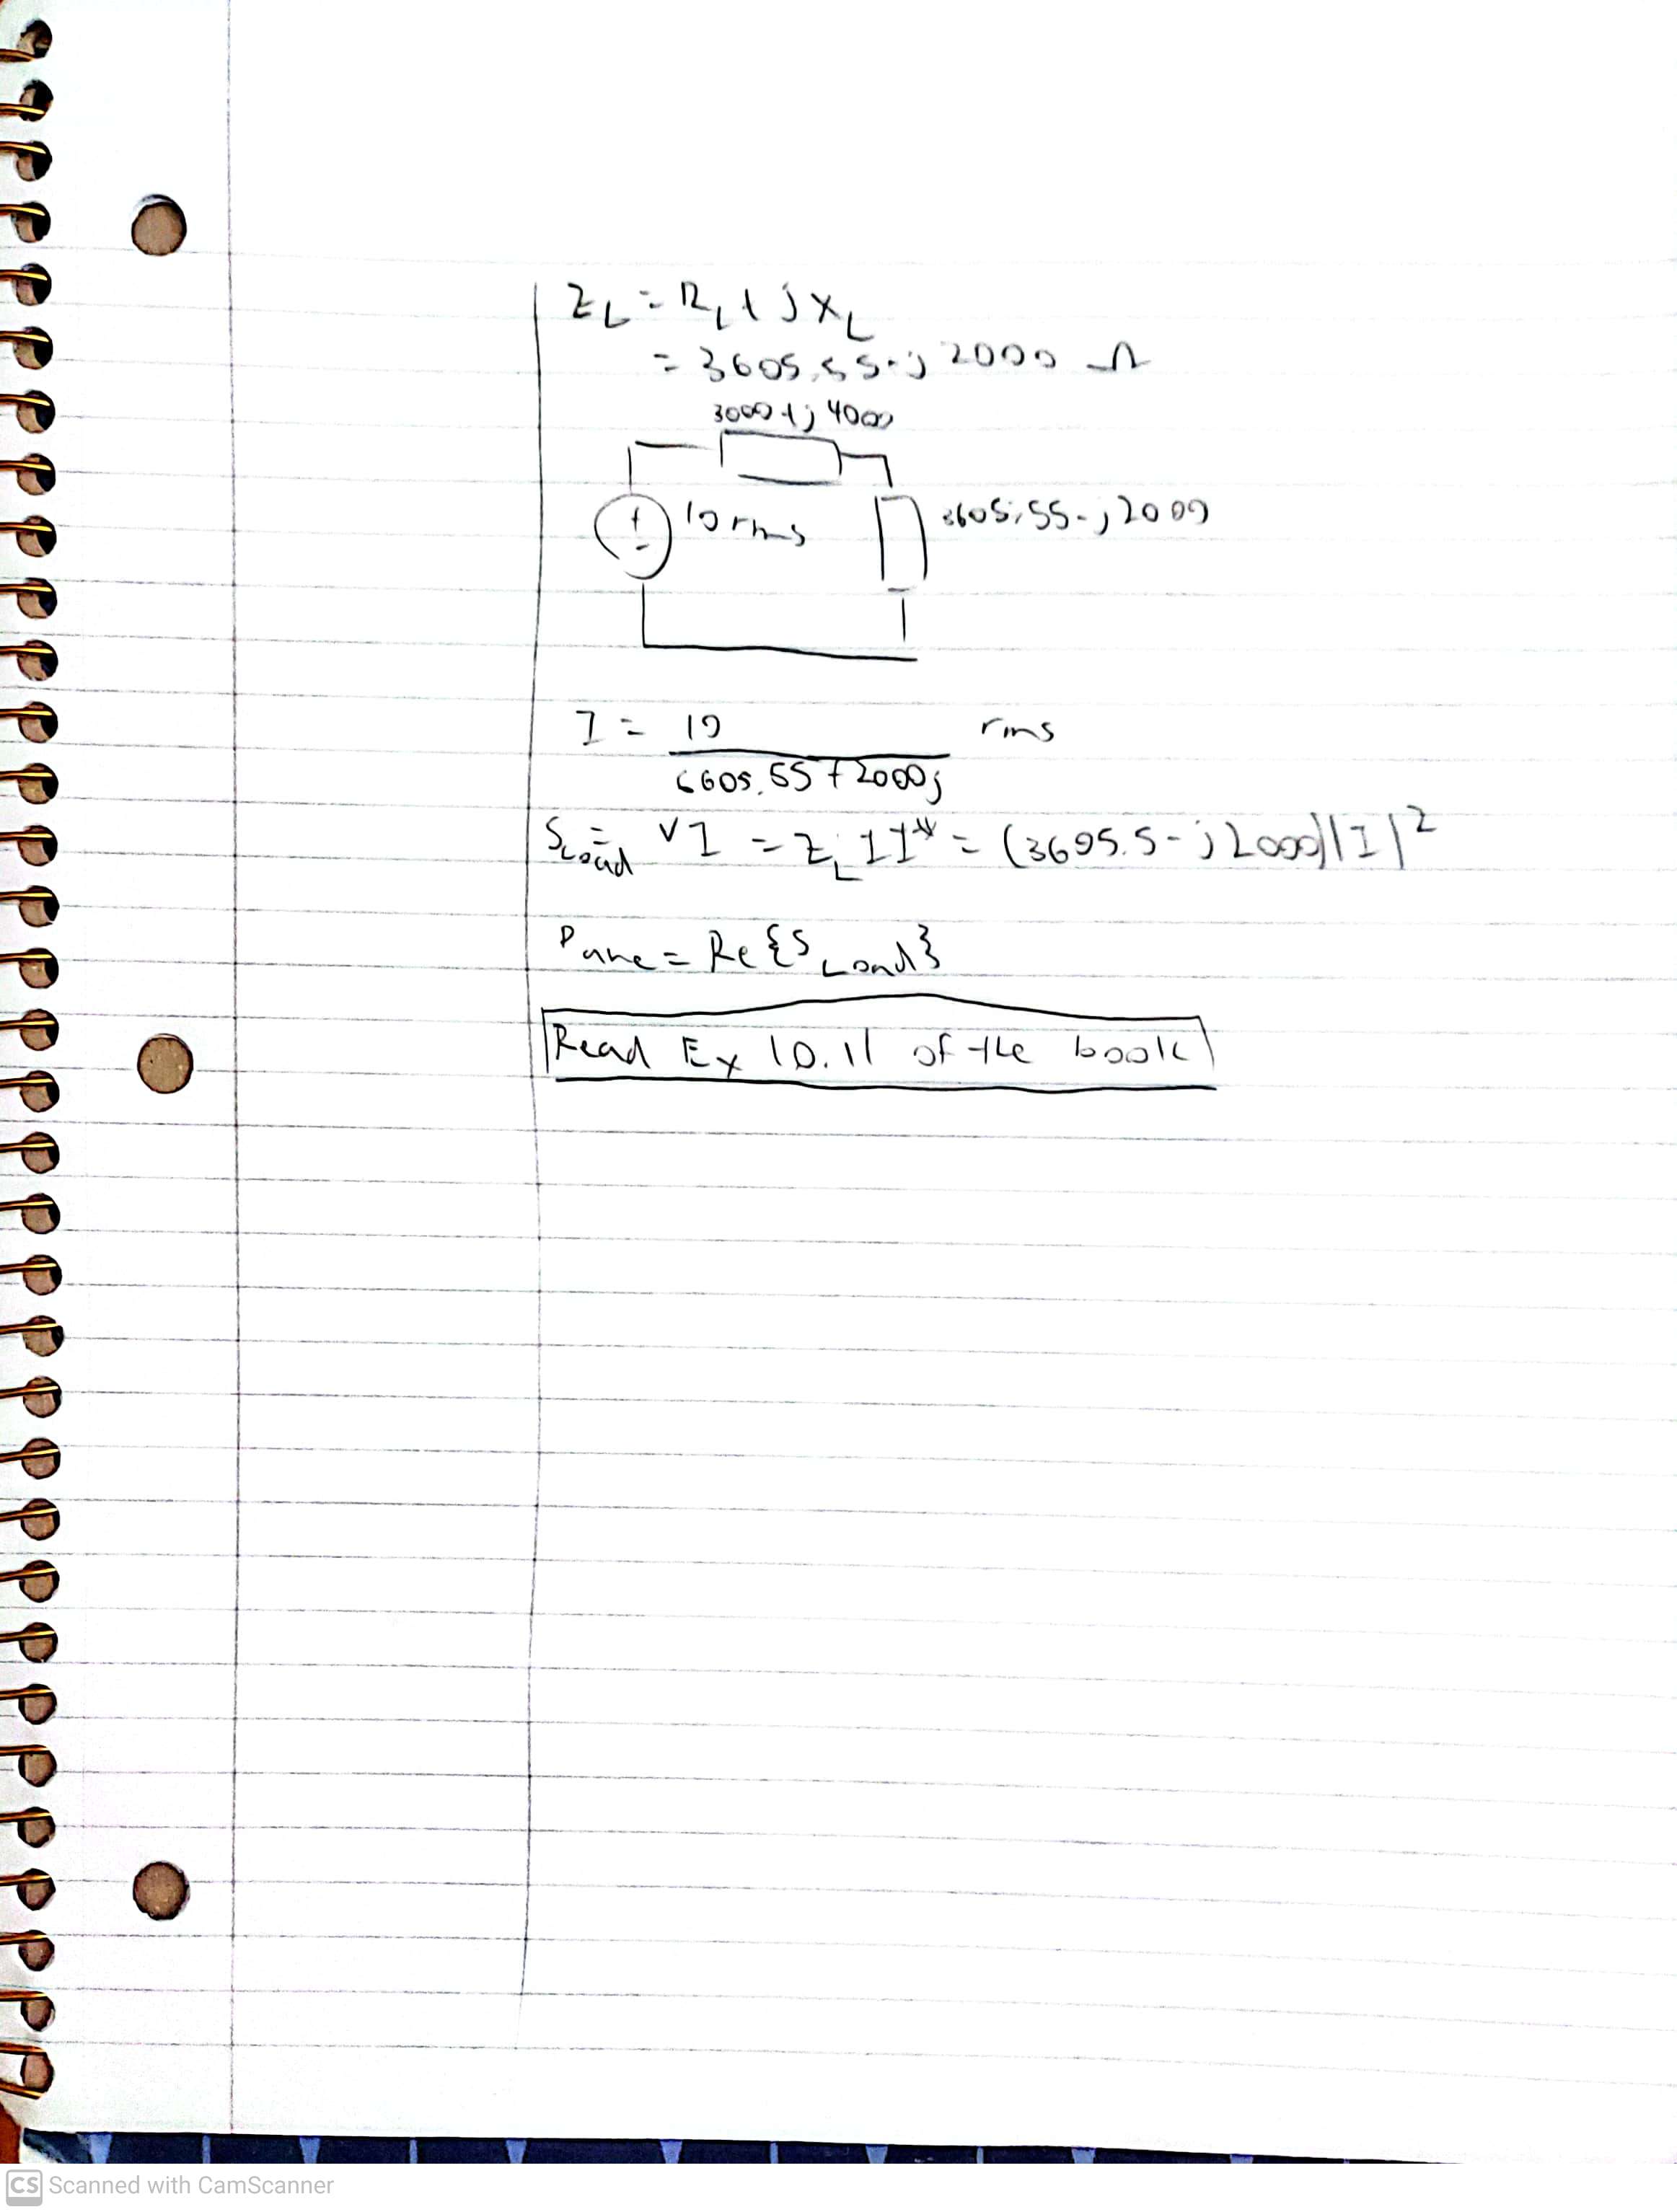 Z_L = R_L + jX_L
= 3605.55 - j 2000 Ω
3000 + j 4000
+
-
10 rms
3605.55 - j 2000
I = 10 / (6605.55 + 2000j) rms
S_Load = VI = Z_L I I* = (3605.5 - j 2000) |I|²
P ave = Re {S Load}
Read Ex 10.11 of the book
CS Scanned with CamScanner